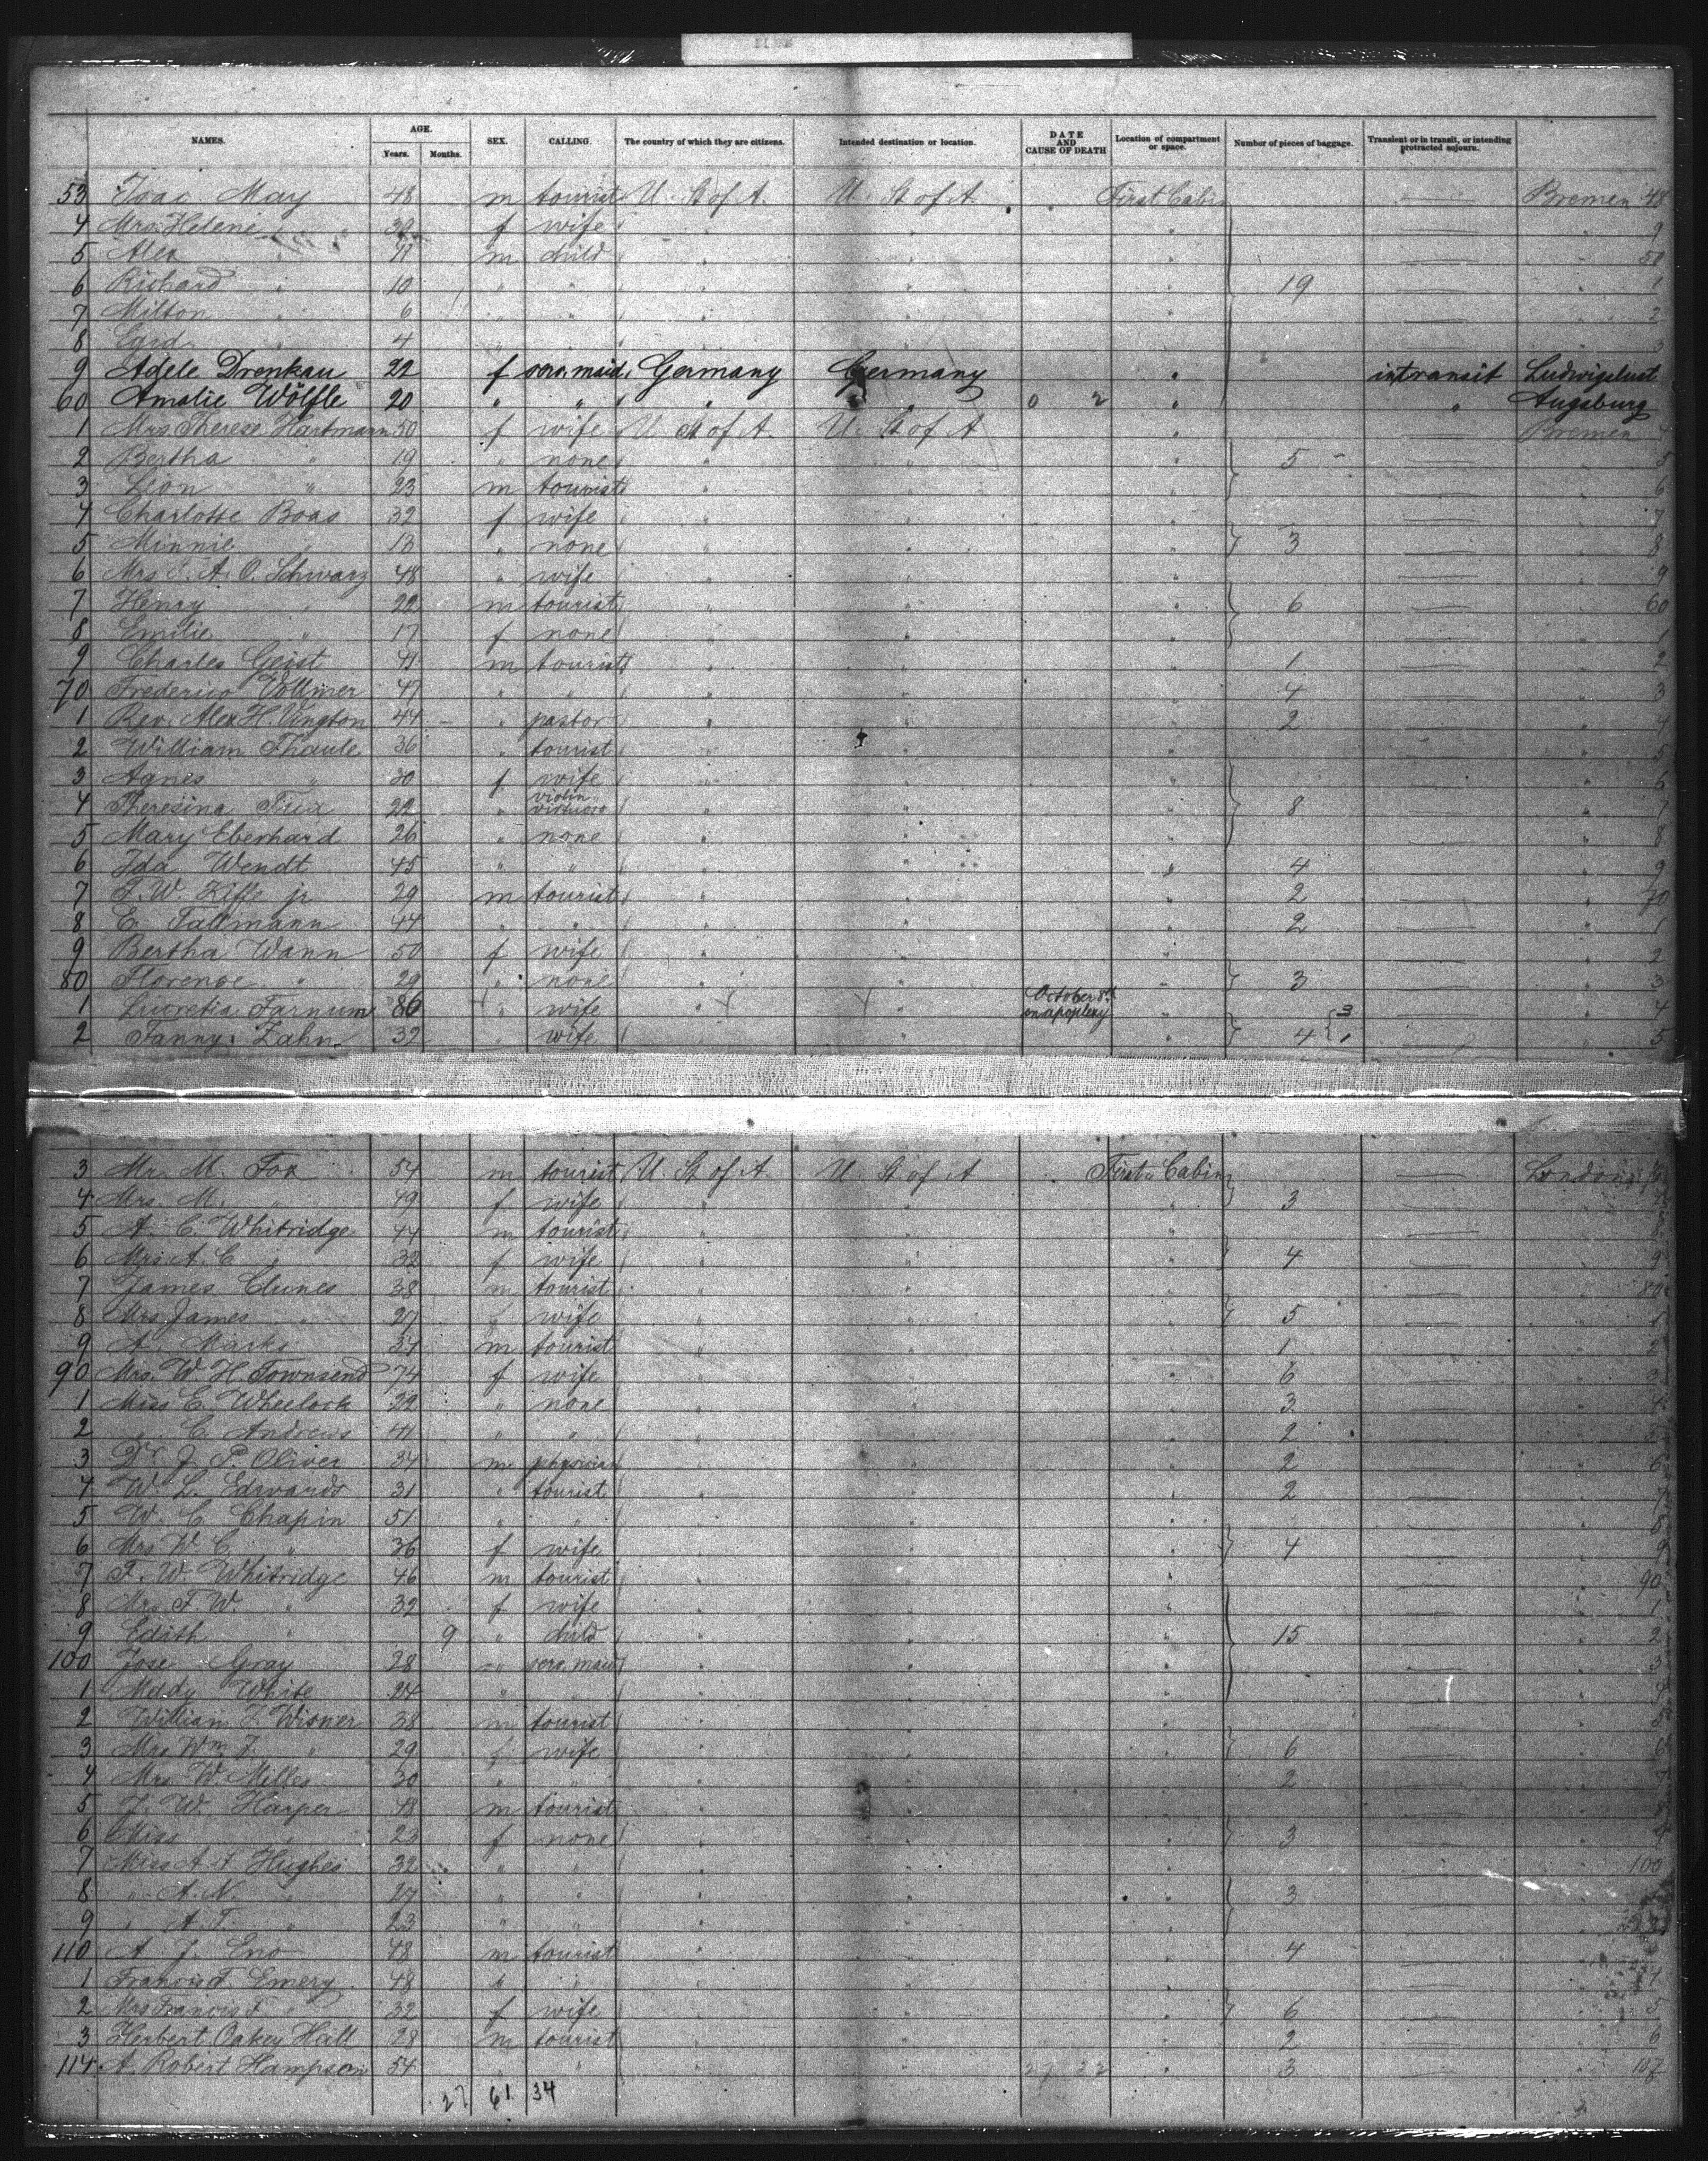 NAMES. AGE. Years. Months. SEX. CALLING. The country of which they are citizens. Intended destination or location. DATE AND CAUSE OF DEATH Location of compartment or space. Number of pieces of baggage. Transient or in transit, or intending protracted sojourn.
53 Isac May 48 m tourist U. St of A. U. St of A. First Cabin Bremen 48
4 Mrs. Helene " 39 f wife " " " " 9
5 Alex " 11 m child " " " " 50
6 Richard " 10 " " " " " 19 " 1
7 Milton " 6 " " " " " " 2
8 " 4 " " " " " " 3
9 Adele Drenkau 22 f serv. maid Germany Germany " in transit Ludwigslust
60 Amalie Wölfle 20 " " " " 0 2 " " Augsburg
1 Mrs Therese Hartmann 50 f wife U St of A. U. St of A " Bremen 4
2 Bertha " 19 " none " " " 5 " 5
3 Leon " 23 m tourist " " " " 6
4 Charlotte Boas 32 f wife " " " " 7
5 Minnie " 13 " none " " " 3 " 8
6 Mrs F. A. O. Schwarz 48 " wife " " " " 9
7 Henry " 22 m tourist " " " 6 " 60
8 Emilie " 17 f none " " " " 1
9 Charles Geist 41 m tourist " " " 1 " 2
70 Frederico Vollmer 47 " " " " " 4 " 3
1 Rev. Alex H. Vington 44 " pastor " " " 2 " 4
2 William Thaule 36 " tourist " " " " 5
3 Agnes " 30 f wife " " " " 6
4 Theresina Tua 22 " violin virtuoso " " " 8 " 7
5 Mary Eberhard 26 " none " " " " 8
6 Ida Wendt 45 " " " " " 4 " 9
7 F. W. Kiffe jr 29 m tourist " " " 2 " 70
8 E. Tallmann 44 " " " " " 2 " 1
9 Bertha Wann 50 f wife " " " " 2
80 Florence " 29 " none " " " 3 " 3
1 Lucretia Farnum 86 " wife " " October 8th on apoplexy " 3 " 4
2 Fanny Zahn 32 " wife " " " 4 1 " 5
3 Mr. M. Fox 54 m tourist U. St of A. U. St of A First Cabin London 6
4 Mrs. M. " 49 f wife " " " 3 " 7
5 A. C. Whitridge 44 m tourist " " " " 8
6 Mrs A. C. " 32 f wife " " " 4 " 9
7 James Clunes 38 m tourist " " " " 80
8 Mrs James " 27 " wife " " " 5 " 1
9 A. Marks 37 m tourist " " " 1 " 2
90 Mrs. W. H. Townsend 74 f wife " " " 6 " 3
1 Miss E. Wheelock 22 " none " " " 3 " 4
2 " C. Andrews 41 " " " " " 2 " 5
3 Dr J. P. Oliver 34 m physician " " " 2 " 6
4 W. L. Edwards 31 " tourist " " " 2 " 7
5 W. C. Chapin 51 " " " " " " 8
6 Mrs W. C. " 36 f wife " " " 4 " 9
7 F. W. Whitridge 46 m tourist " " " " 90
8 Mrs F. W. " 32 f wife " " " " 1
9 Edith " 9 " child " " " 15 " 2
100 Jose Gray 28 " serv. maid " " " " 3
1 Meddy White 24 " " " " " " 4
2 William J. Wisner 38 m tourist " " " " 5
3 Mrs Wm J. " 29 f wife " " " 6 " 6
4 Mrs W. Miller 30 " " " " " 2 " 7
5 J. W. Harper 48 m tourist " " " " 8
6 Miss " 23 f none " " " 3 " 9
7 Miss A. F. Hughes 32 " " " " " " 100
8 " A. N. " 27 " " " " " 3 "
9 " A. T. " 23 " " " " " "
110 A. J. Eno 48 m tourist " " " 4 "
1 Francis F. Emery 48 " " " " " " 4
2 Mrs Francis F. " 32 f wife " " " 6 " 5
3 Herbert Oakey Hall 28 m tourist " " " 2 " 6
114 A. Robert Hampson 54 " " " " 27 32 " 3 " 107
27 61 34